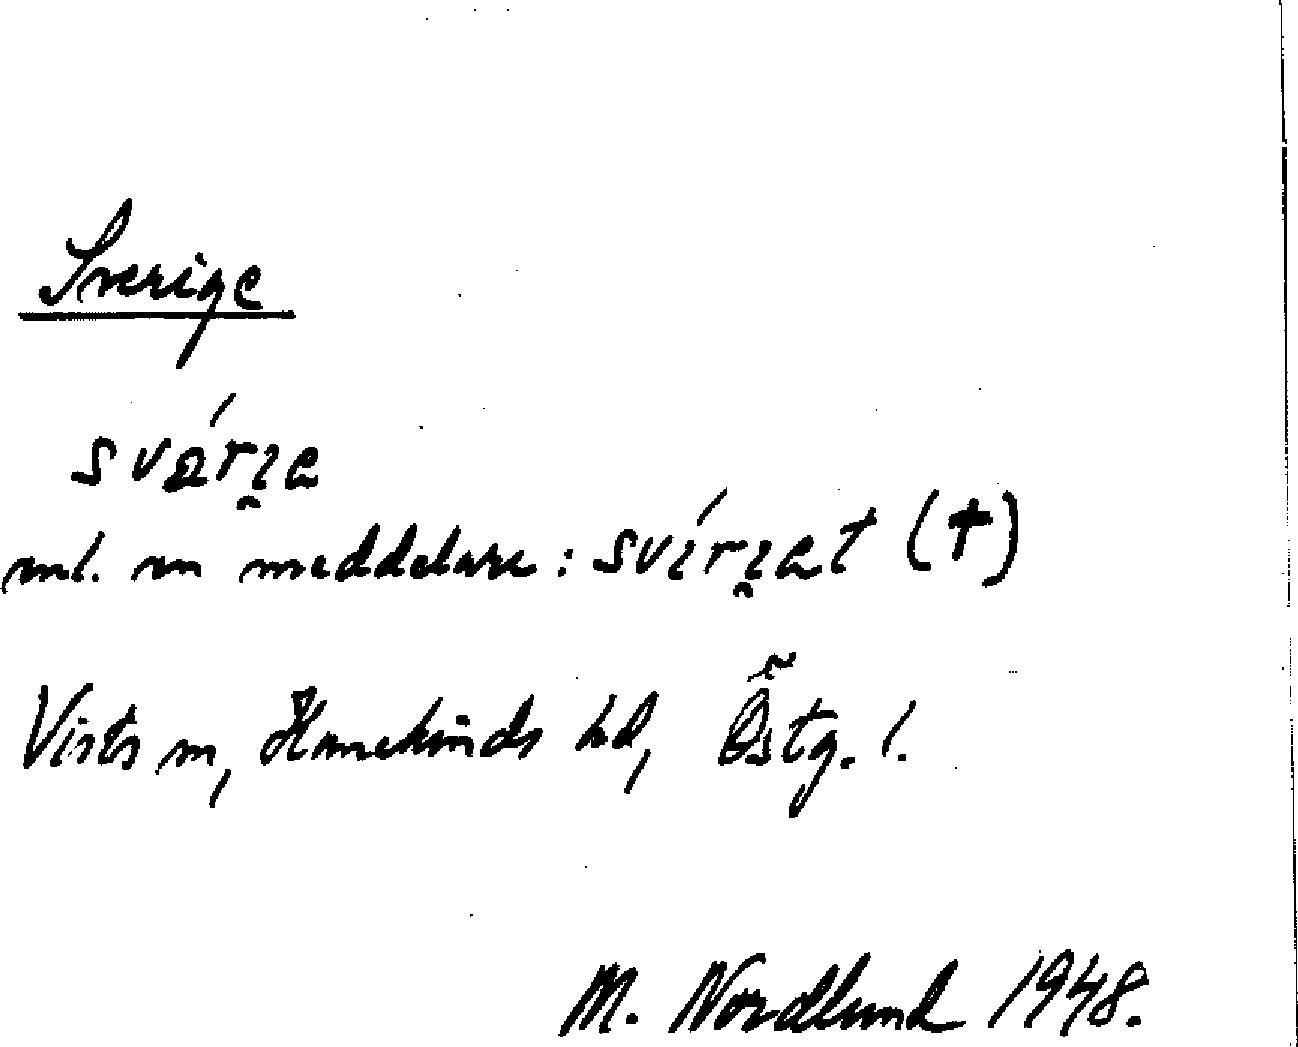 Sverige
svärɩ̯a
enl. en meddelare: svɩ́rɩ̯at (†)
Vists sn, Hanekinds hd, Östg. l.
M. Nordlund 1948.